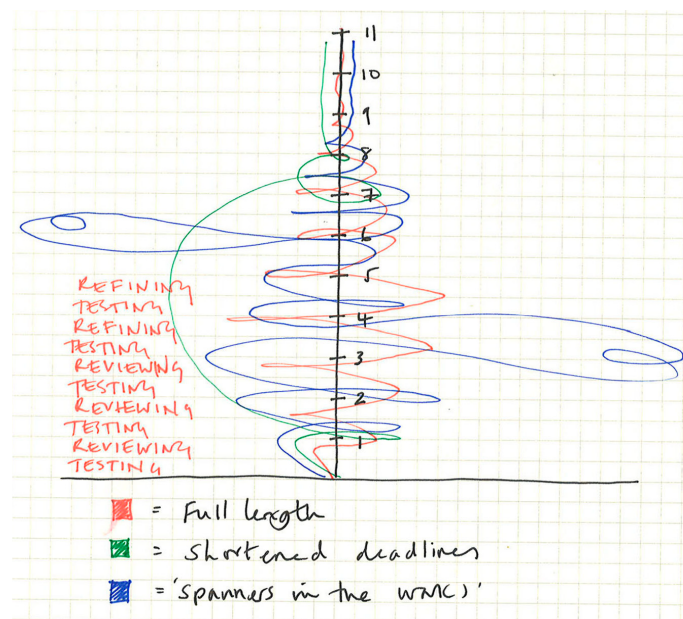 11
10
9
8
7
6
5
REFINING
TESTING
4
REFINING
TESTING
3
REVIEWING
TESTING
2
REVIEWING
TESTING
1
REVIEWING
TESTING
= Full length
= Shortened deadlines
= 'Spanners in the works'